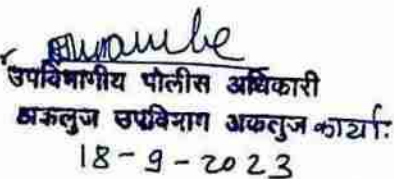 उपविभागीय पोलीस अधिकारी
अकलुज उपविभाग अकलुज कार्या:
18-9-2023